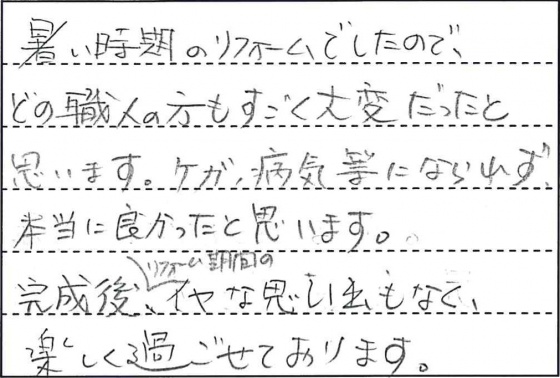 暑い時期のリフォームでしたので、
どの職人の方もすごく大変だったと
思います。ケガ、病気等になられず、
本当に良かったと思います。
リフォーム期間の
完成後、イヤな思い出もなく、
楽しく過ごせております。